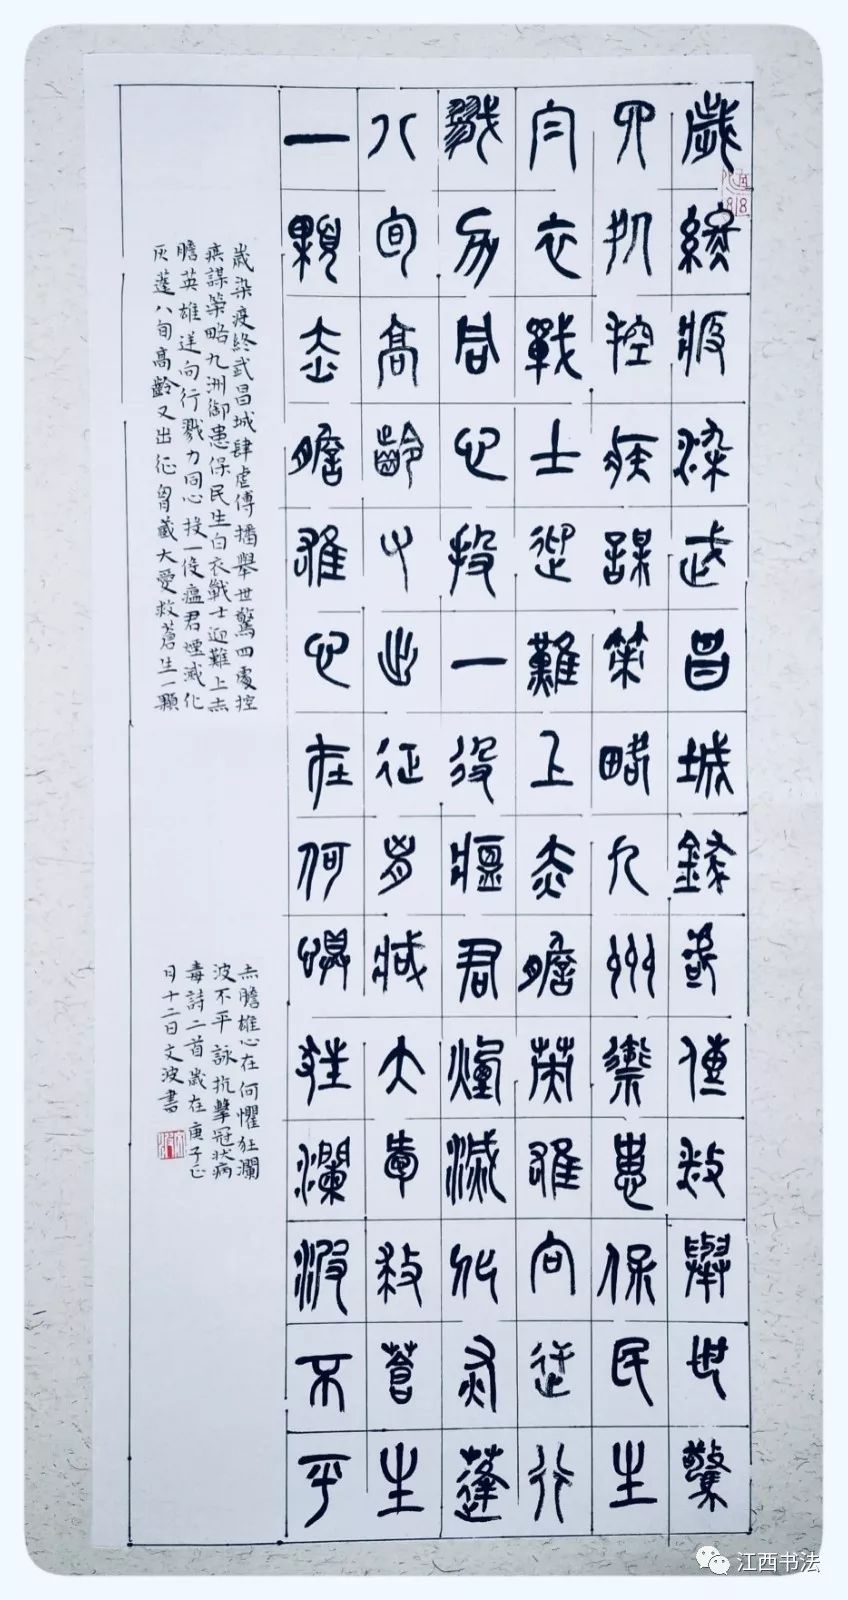 歲終疫染武昌城肆虐傳播舉世驚
四處控疾謀策略九州禦患保民生
白衣戰士迎難上赤膽英雄向逆行
戮力同心投一役瘟君煙滅化灰蓬
八旬高齡又出征胷藏大愛救蒼生
一顆赤膽雄心在何懼狂瀾波不平
歲染疫終武昌城肆虐傳播舉世驚四處控
疾謀策略九洲御患保民生白衣戰士迎難上赤
膽英雄逆向行戮力同心投一役瘟君煙滅化
灰蓬八旬高齡又出征胷藏大愛救蒼生一顆
赤膽雄心在何懼狂瀾
波不平 詠抗擊冠狀病
毒詩二首歲在庚子正
月十二日文波書
江西书法